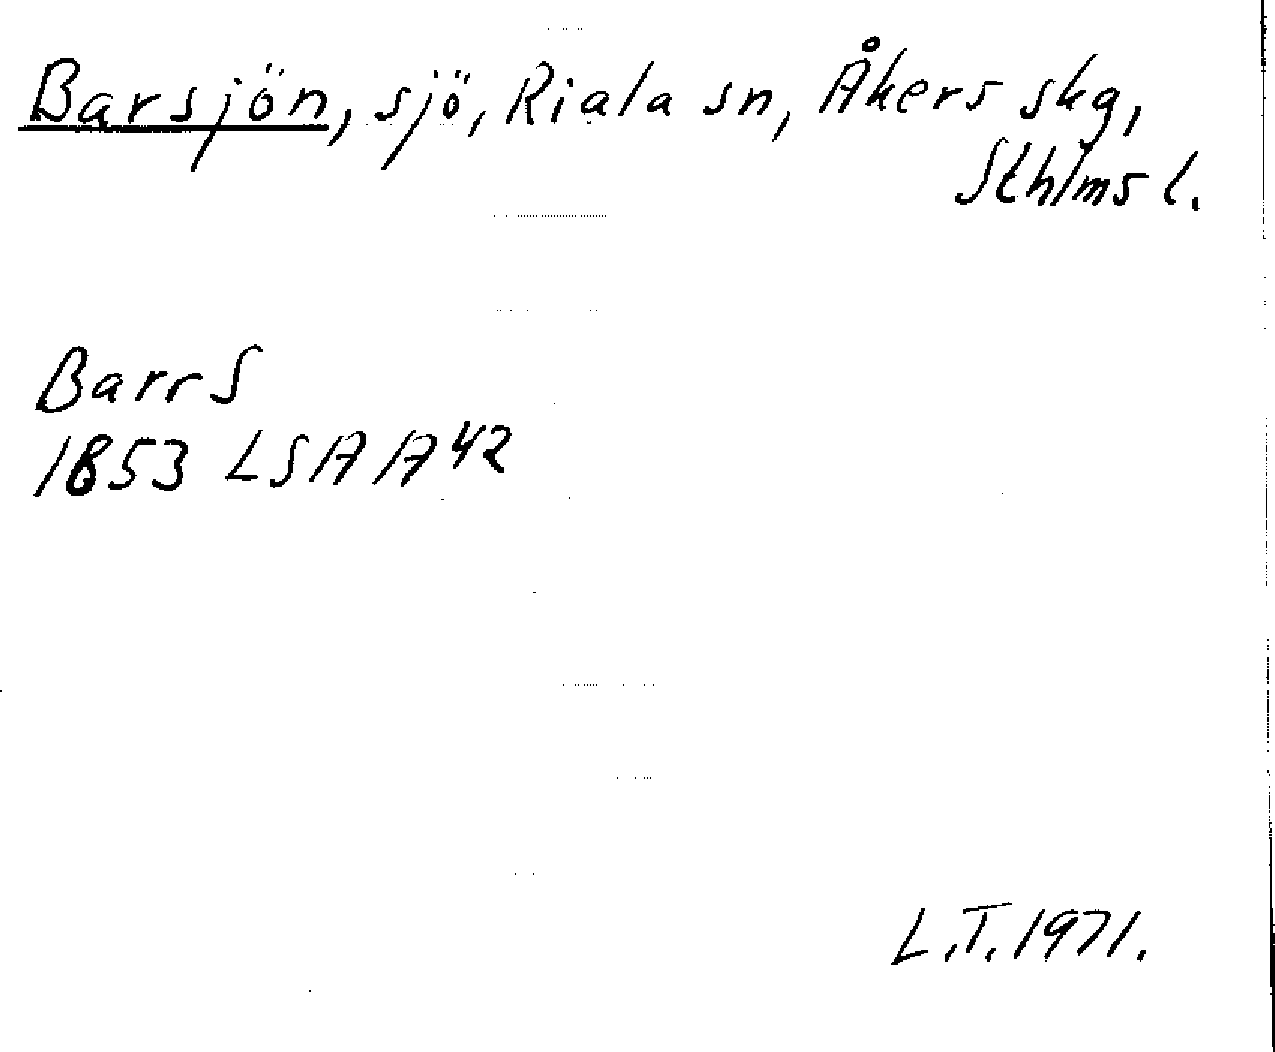 Barsjön, sjö, Riala sn, Åkers skg,
Sthlms l.
Barr S
1853 LSA A 42
L.T. 1971.